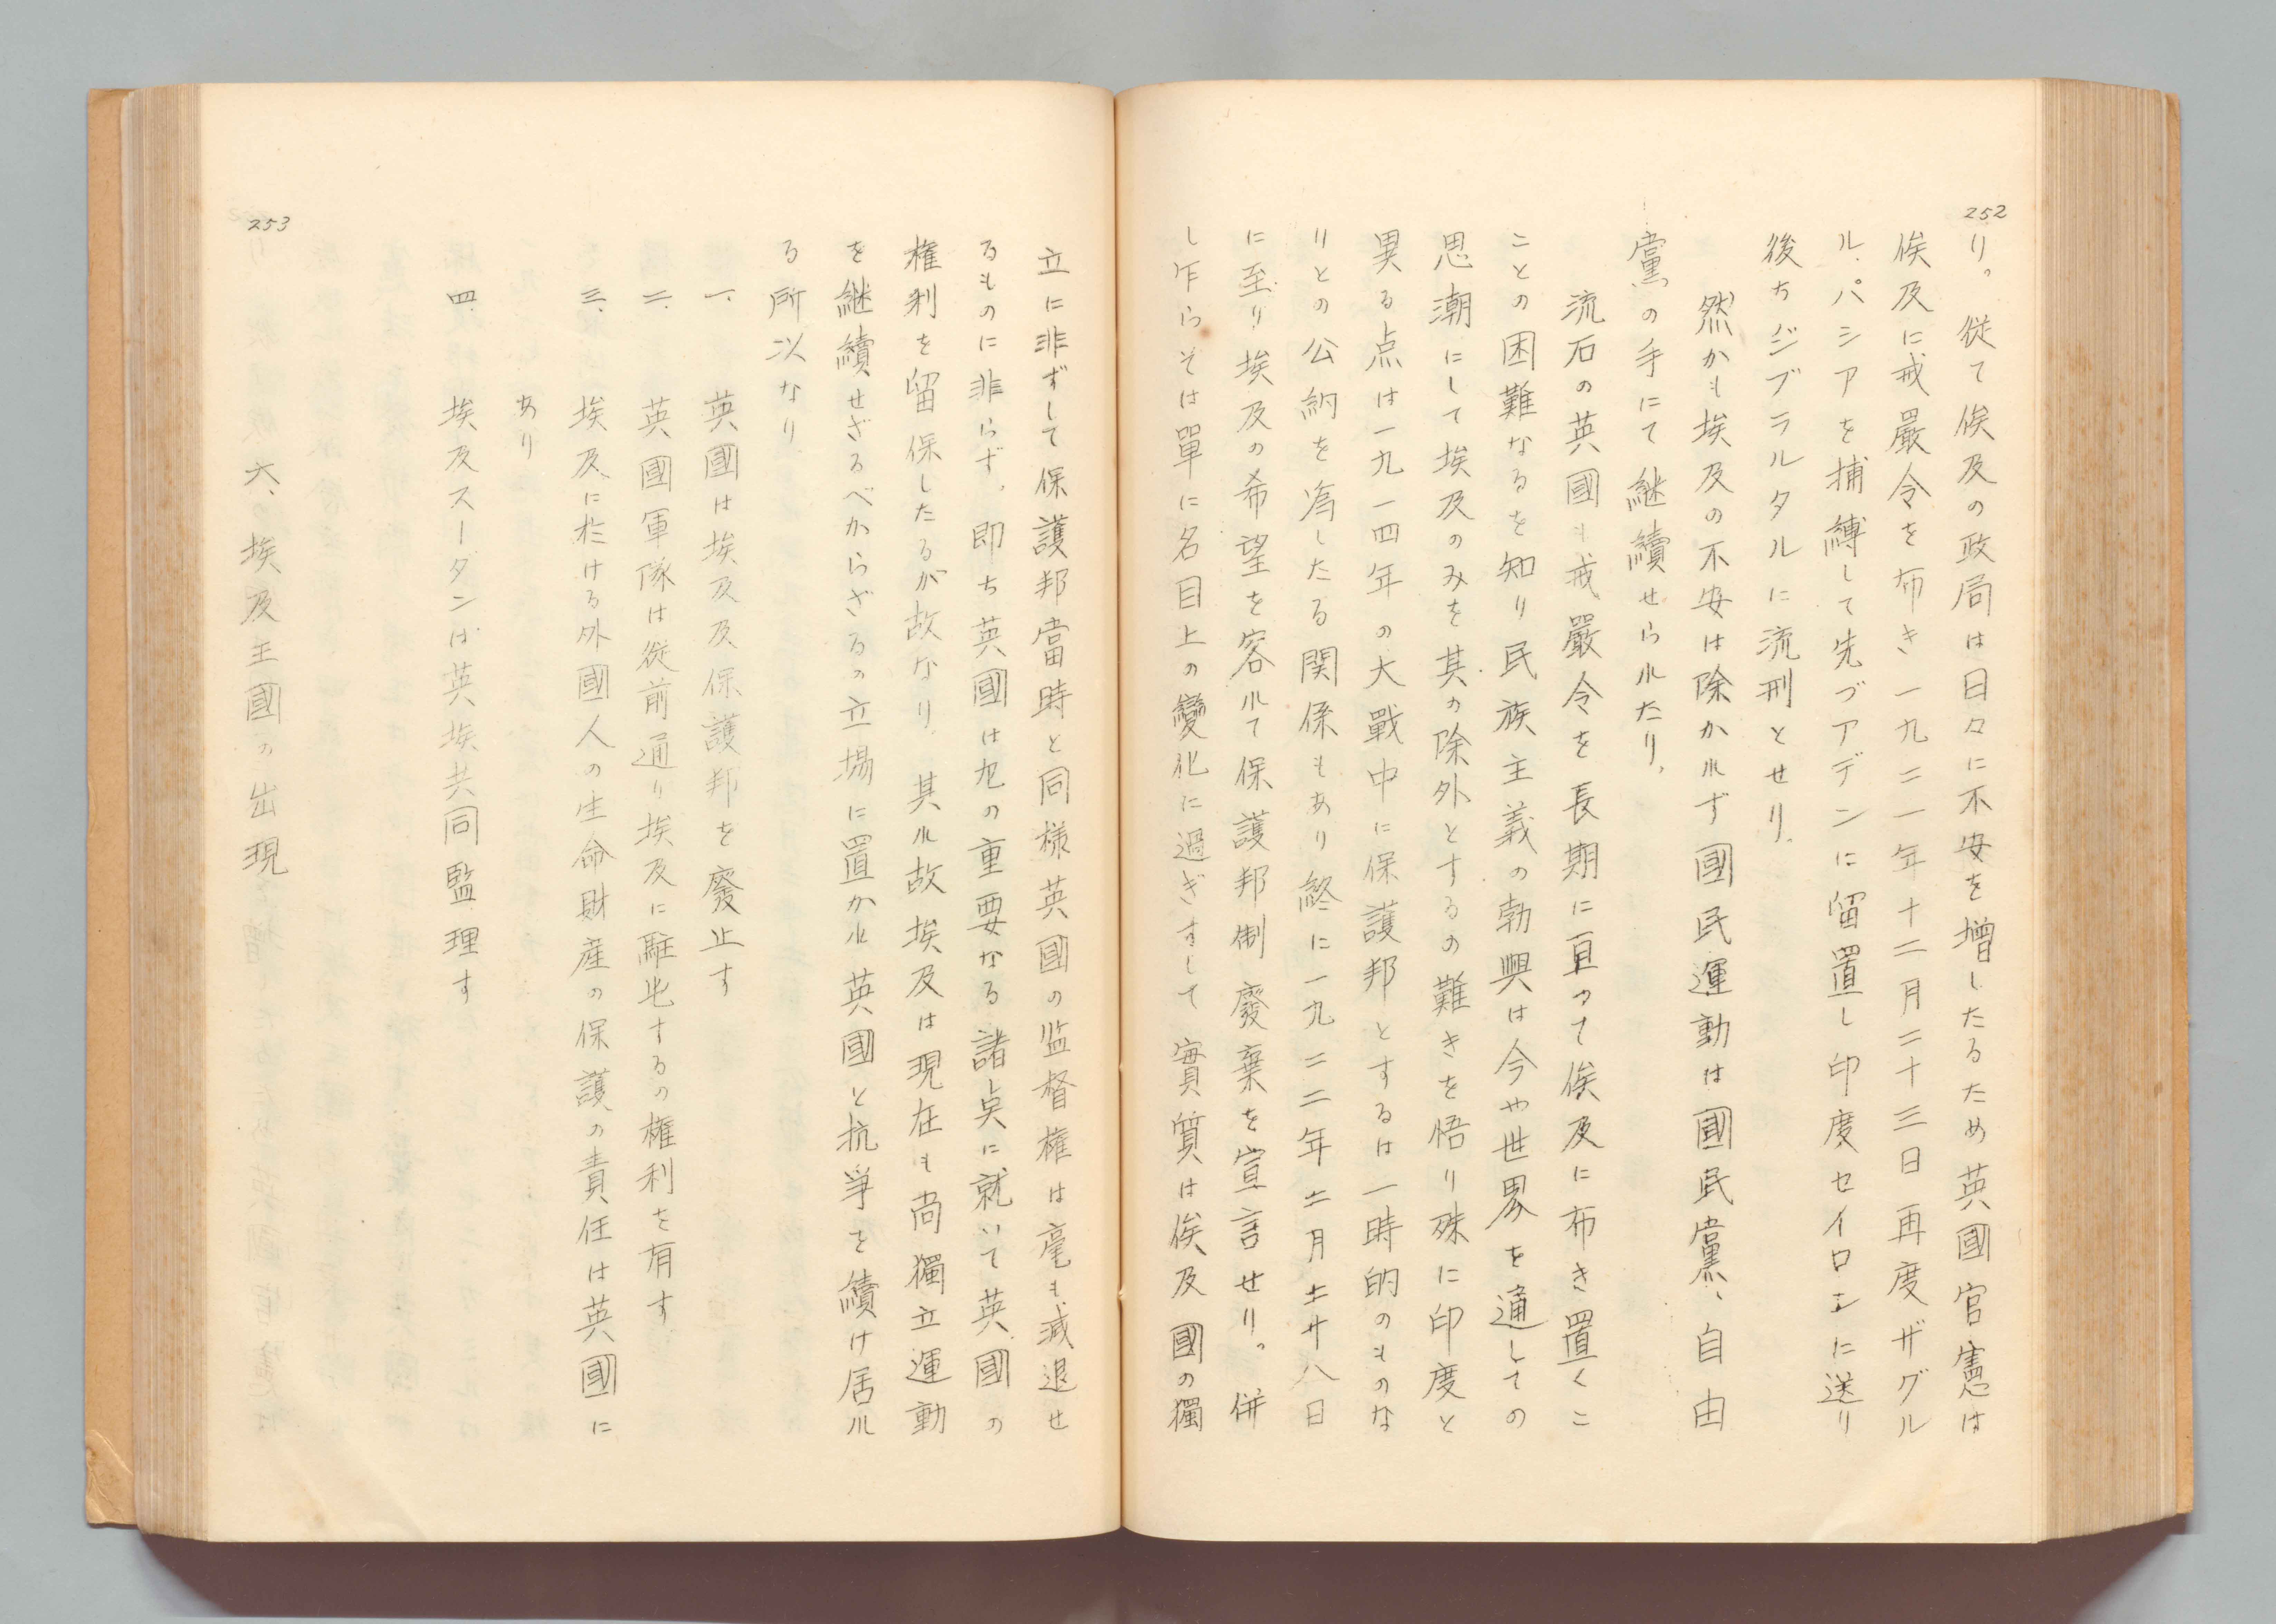 252
り。従て埃及の政局は日々に不安を増したるため英國官憲は
埃及に戒嚴令を布き一九二一年十二月二十三日再度ザグル
ル、パシアを捕縛して先づアデンに留置し印度セイロンに送り
後ちジブラルタルに流刑とせり、
然かも埃及の不安は除かれず國民運動は國民黨、自由
黨の手にて継續せられたり、
流石の英國も戒嚴令を長期に亘つて埃及に布き置くこ
ことの困難なるを知り民族主義の勃興は今や世界を通しての
思潮にして埃及のみを其の除外とするの難きを悟り殊に印度と
異る点は一九一四年の大戰中に保護邦とするは一時的のものな
りとの公約を為したる関係もあり終に一九二二年二月廿八日
に至り埃及の希望を容れて保護邦制廢棄を宣言せり。併
し乍らそは單に名目上の變化に過ぎずして實質は埃及國の獨
253
立に非ずして保護邦當時と同様英國の监督權は毫も減退せ
るものに非らず、即ち英國は九の重要なる諸点に就いて英國の
権利を留保したるが故なり、其れ故埃及は現在も尚獨立運動
を継續せざるべからざるの立場に置かれ英國と抗爭を續け居れ
る所以なり
一、英國は埃及及保護邦を廢止す
二、英國軍隊は從前通り埃及に駐屯するの権利を有す
三、埃及に於ける外國人の生命財産の保護の責任は英國に
あり
四、埃及スーダンは英埃共同監理す
六、埃及王國の出現